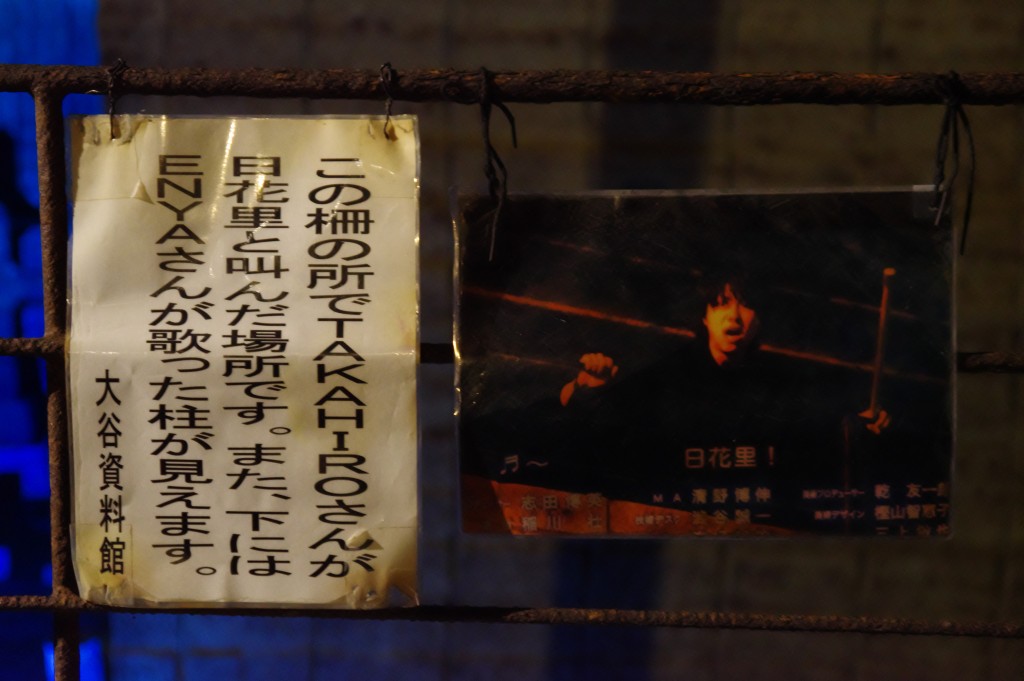 この柵の所でTAKAHIROさんが
日花里と叫んだ場所です。また、下には
ENYAさんが歌った柱が見えます。
大谷資料館
♬～
日花里！
志田
MA 清野博伸
乾 友一郎
樫山智恵子